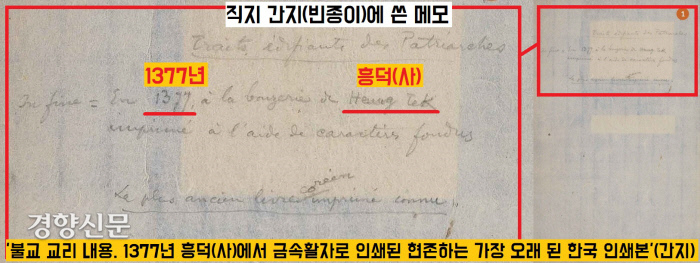 직지 간지(빈종이)에 쓴 메모
1
traité édifiants des Patriarches
1377년
흥덕(사)
In fine = En 1377, à la bonzerie de Heung Tek
imprimé à l'aide de caractères fondus
coréen
Le plus ancien livre imprimé connu
경향신문
'불교 교리 내용. 1377년 흥덕(사)에서 금속활자로 인쇄된 현존하는 가장 오래 된 한국 인쇄본'(간지)